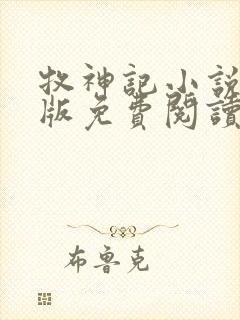 牧神記小說
版免費閱讀
布魯克